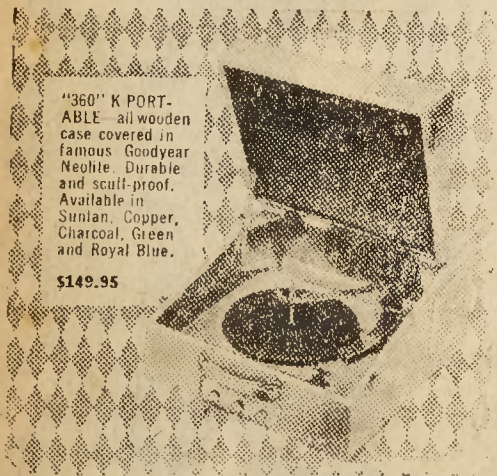 "360" K PORT-
ABLE—all wooden
case covered in
famous Goodyear
Neolite. Durable
and scuff-proof.
Available in
Suntan, Copper,
Charcoal, Green
and Royal Blue.
$149.95